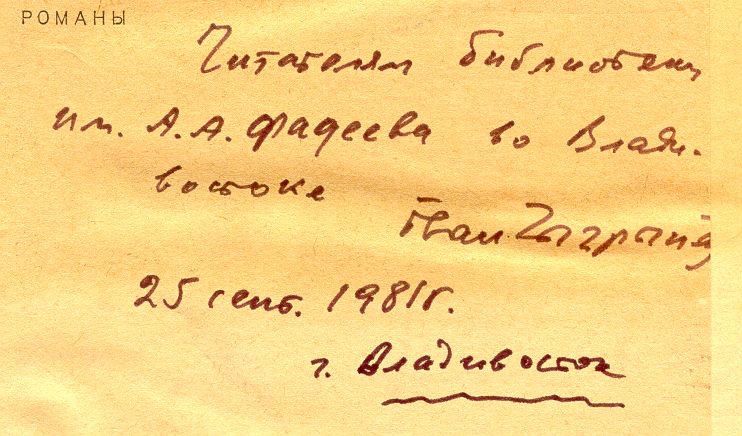 РОМАНЫ
Читателям библиотеки
им. А.А. Фадеева во Влади-
востоке
Іван Чыгрынаў
25 сент. 1981г.
г. Владивосток